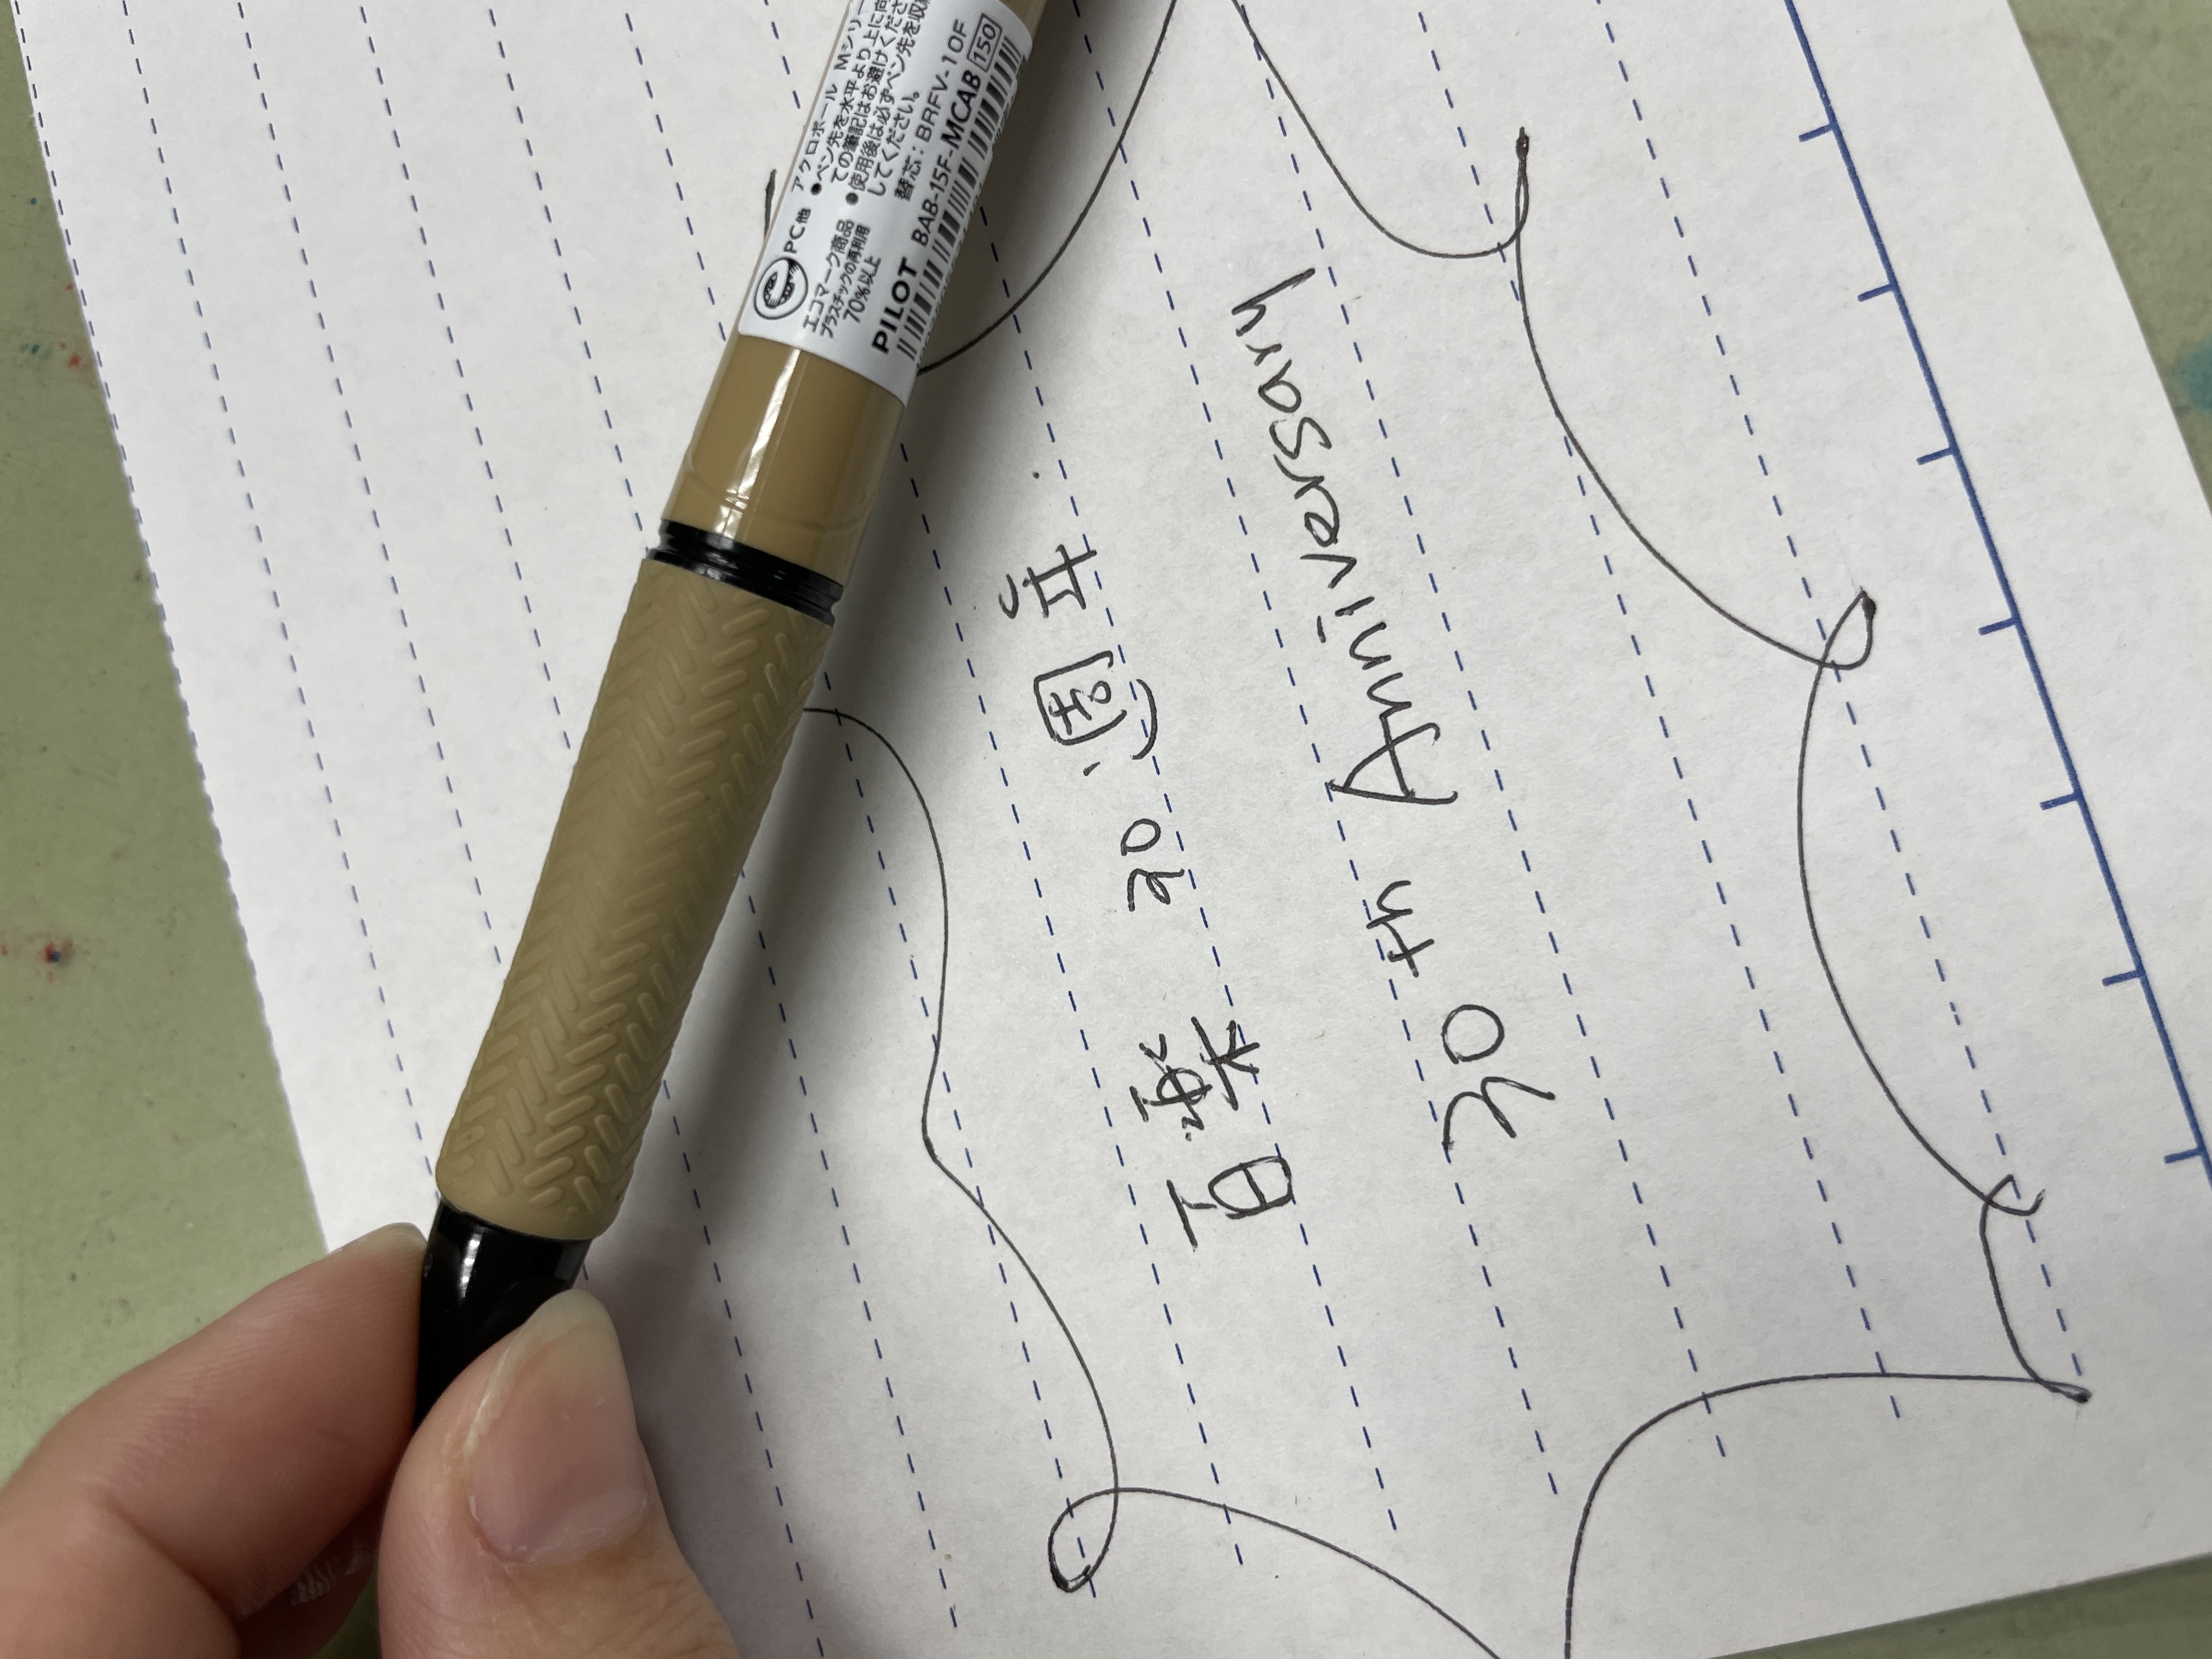 アクロボール Mシリー
• ペン先を水平より上に向
ての筆記はお避けくださ
• 使用後は必ずペン先を収
してください。
替芯：BRFV-10F
PC他
エコマーク商品
プラスチックの再利用
70%以上
PILOT BAB-15F-MCAB 150
百樂 30 週年
30 th Anniversary